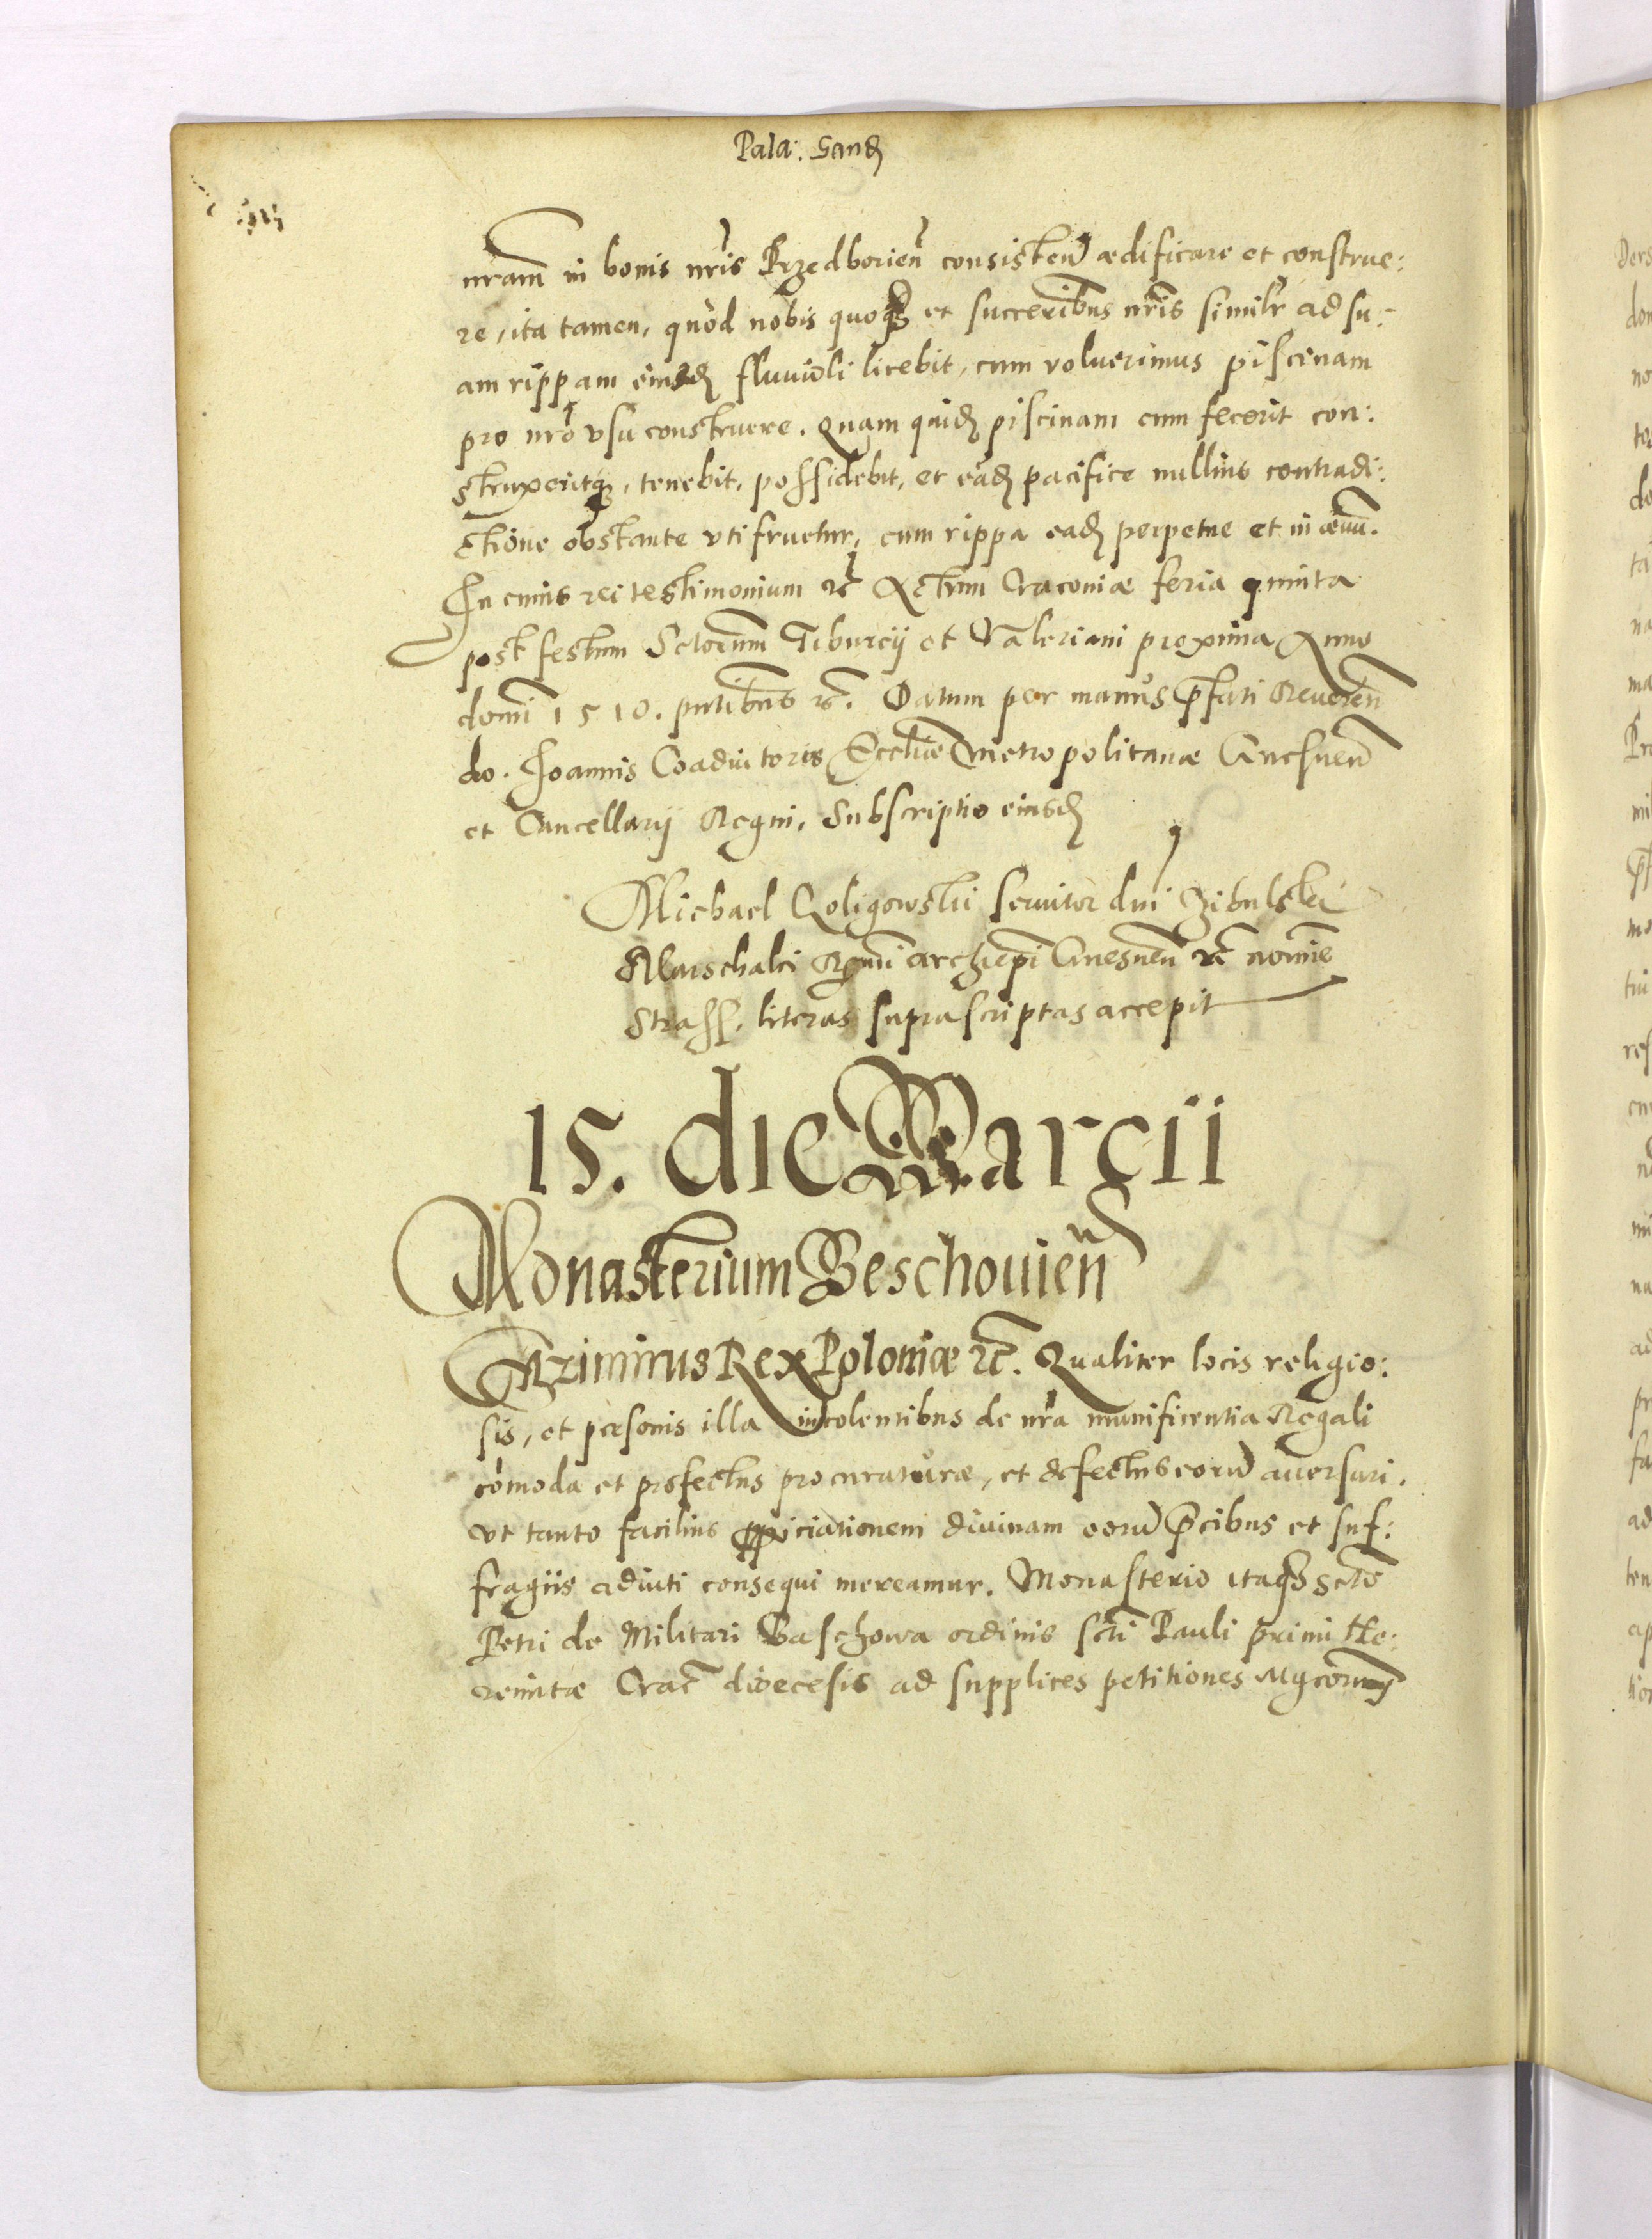 Pala: Sand
nram in bonis nris Przedborien consisten ædificare et construe:
re, ita tamen, quòd nobis quoq et succeribus nris similr ad su:
am rippam eiusd fluuioli licebit, cum voluerimus piscinam
pro nro vsu construere. Quam quid piscinam cum fecerit con:
struxeritq, tenebit, possidebit, et ead pacifice nullius contradi:
ctione obstante vti fruetur, cum rippa ead perpetue et in æuu.
In cuius rei testimonium &c Actum Cracoviæ feria quinta
post festum Sctorum Tiburcij et Valeriani proxima Anno
domi 1510. pntibus &c. Datum per manus pfati Reueren
do. Joannis Coadiutoris Eccliæ Metropolitanæ Gnesnen
et Cancellarij Regni, Subscriptio eiusd
Michael Roligowski seruitor dni Zibulski
Marschalci Rmi archiepi Gnesnen &c nomine
literas suprascriptas accepit
15. die Marcii
Monasterium Beschouien
Cazimirus Rex Poloniæ &c. Qualiter locis religio:
sis, et personis illa incolentibus de nra munificentia Regali
comoda et profectus procuraturæ, et defectus eoru auersari,
vt tanto facilius ppiciationem diuinam eoru pcibus et suf:
fragiis adiuti consequi mereamur. Monasterio itaq scto
Petri de Militari Baschowa ordinis scti Pauli primi He:
remitæ Crac dioecesis ad supplices petitiones Mgcorum